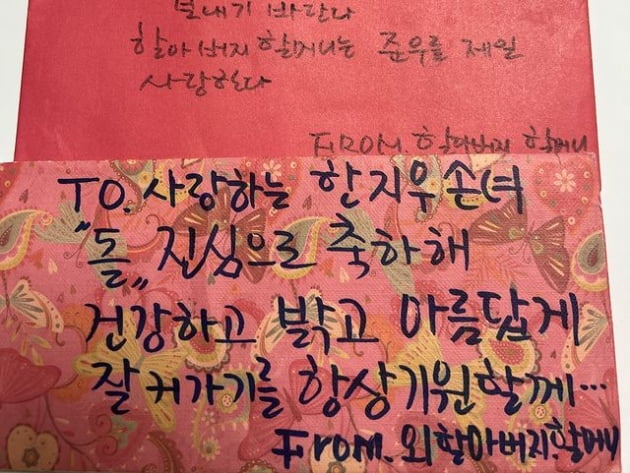 보내기 바란다
할아버지 할머니는 준우를 제일
사랑한다
FROM. 할아버지 할머니
TO. 사랑하는 한지우 손녀
"돌" 진심으로 축하해
건강하고 밝고 아름답게
잘 커가기를 항상 기원할께...
From. 외할아버지.할머니